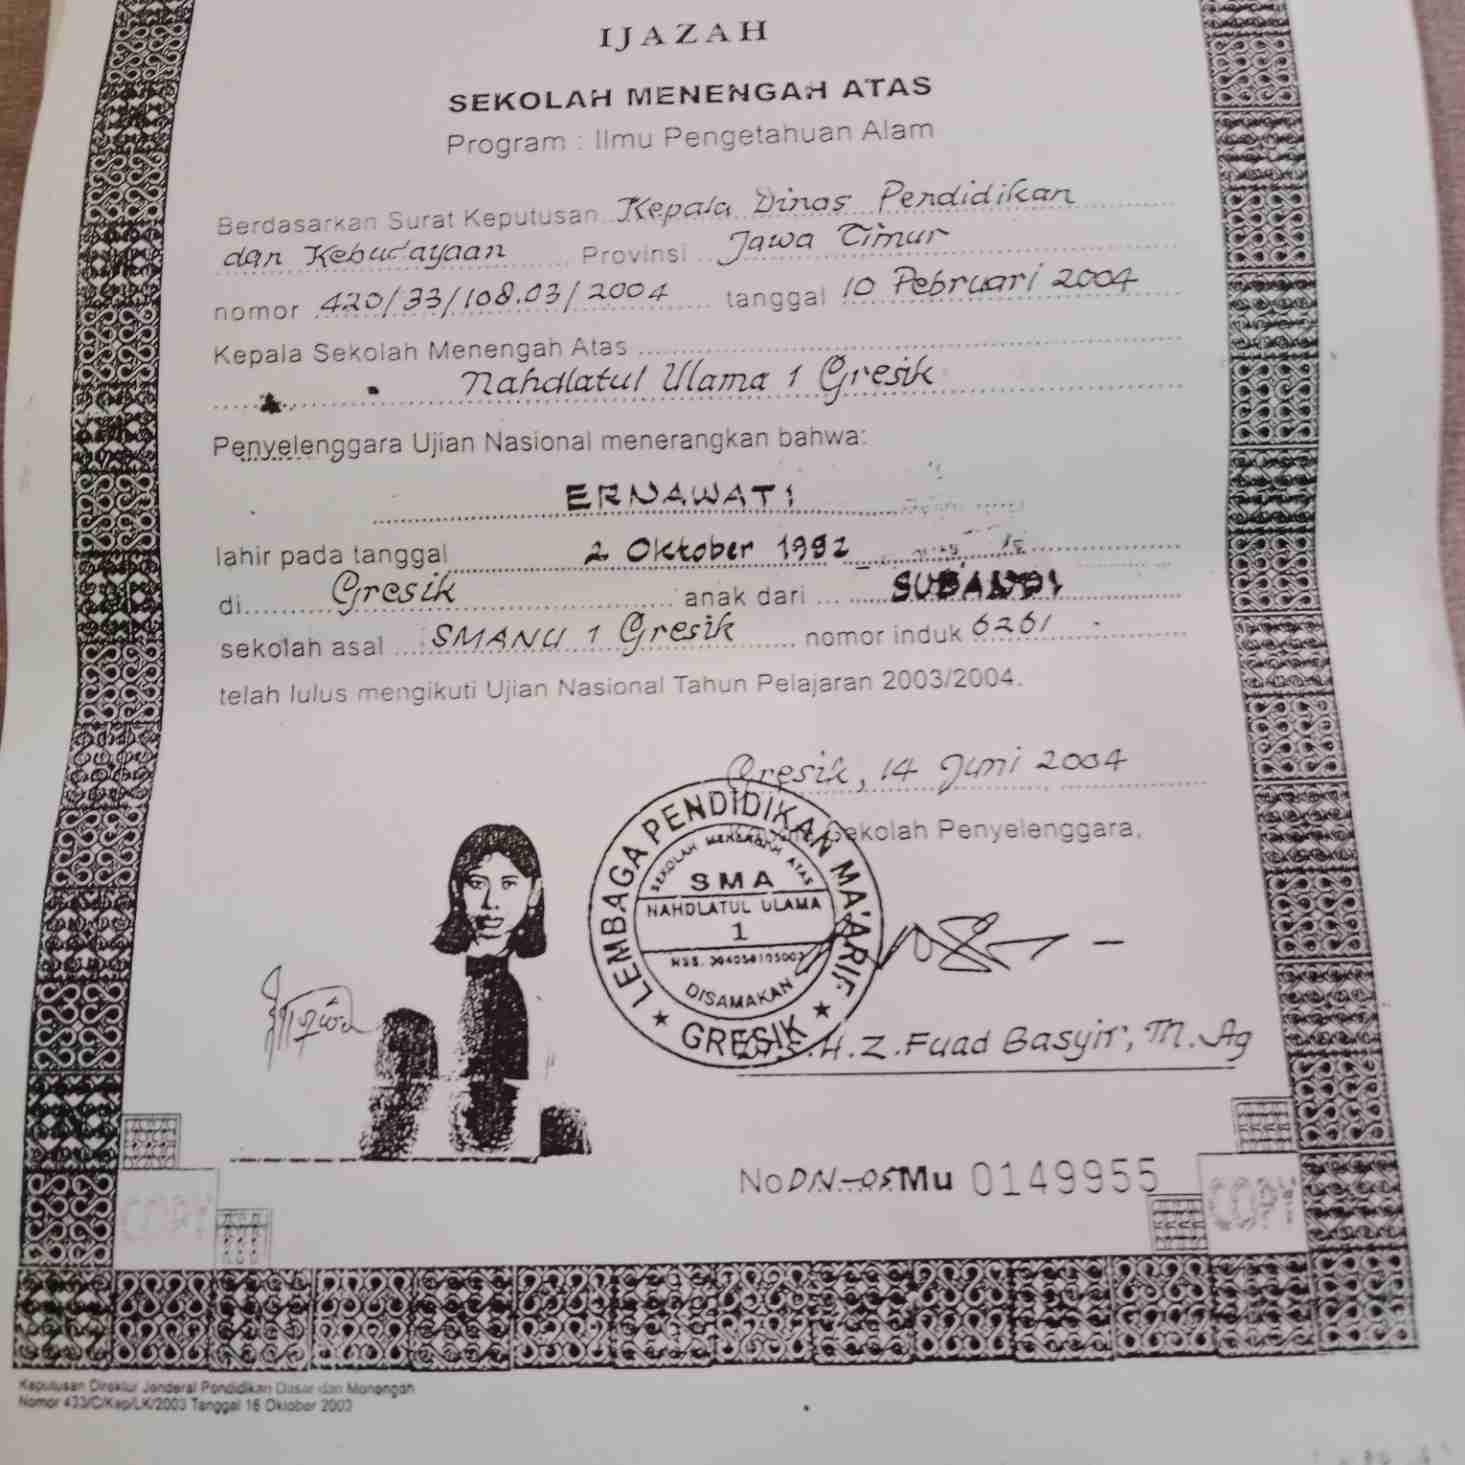 IJAZAH
SEKOLAH MENENGAH ATAS
Program : Ilmu Pengetahuan Alam
Berdasarkan Surat Keputusan Kepala Dinas Pendidikan
dan Kebudayaan Provinsi Jawa Timur
nomor 420/33/108.03/2004 tanggal 10 Pebruari 2004
Kepala Sekolah Menengah Atas
Nahdlatul Ulama 1 Gresik
Penyelenggara Ujian Nasional menerangkan bahwa:
ERNAWATI
lahir pada tanggal 2 Oktober 1992
di Gresik anak dari SUBANDI
sekolah asal SMANU 1 Gresik nomor induk 6261
telah lulus mengikuti Ujian Nasional Tahun Pelajaran 2003/2004.
Gresik, 14 Juni 2004
Sekolah Penyelenggara,
LEMBAGA PENDIDIKAN MA'ARIF
SEKOLAH MENENGAH ATAS
SMA
NAHDLATUL ULAMA
1
NSS.
DISAMAKAN
★ GRESIK ★
H.Z.Fuad Basyir, M.Ag
No DN-05 Mu 0149955
COPY
COPY
Keputusan Direktur Jenderal Pendidikan Dasar dan Menengah
Nomor 433/C/Kep/LK/2003 Tanggal 16 Oktober 2003